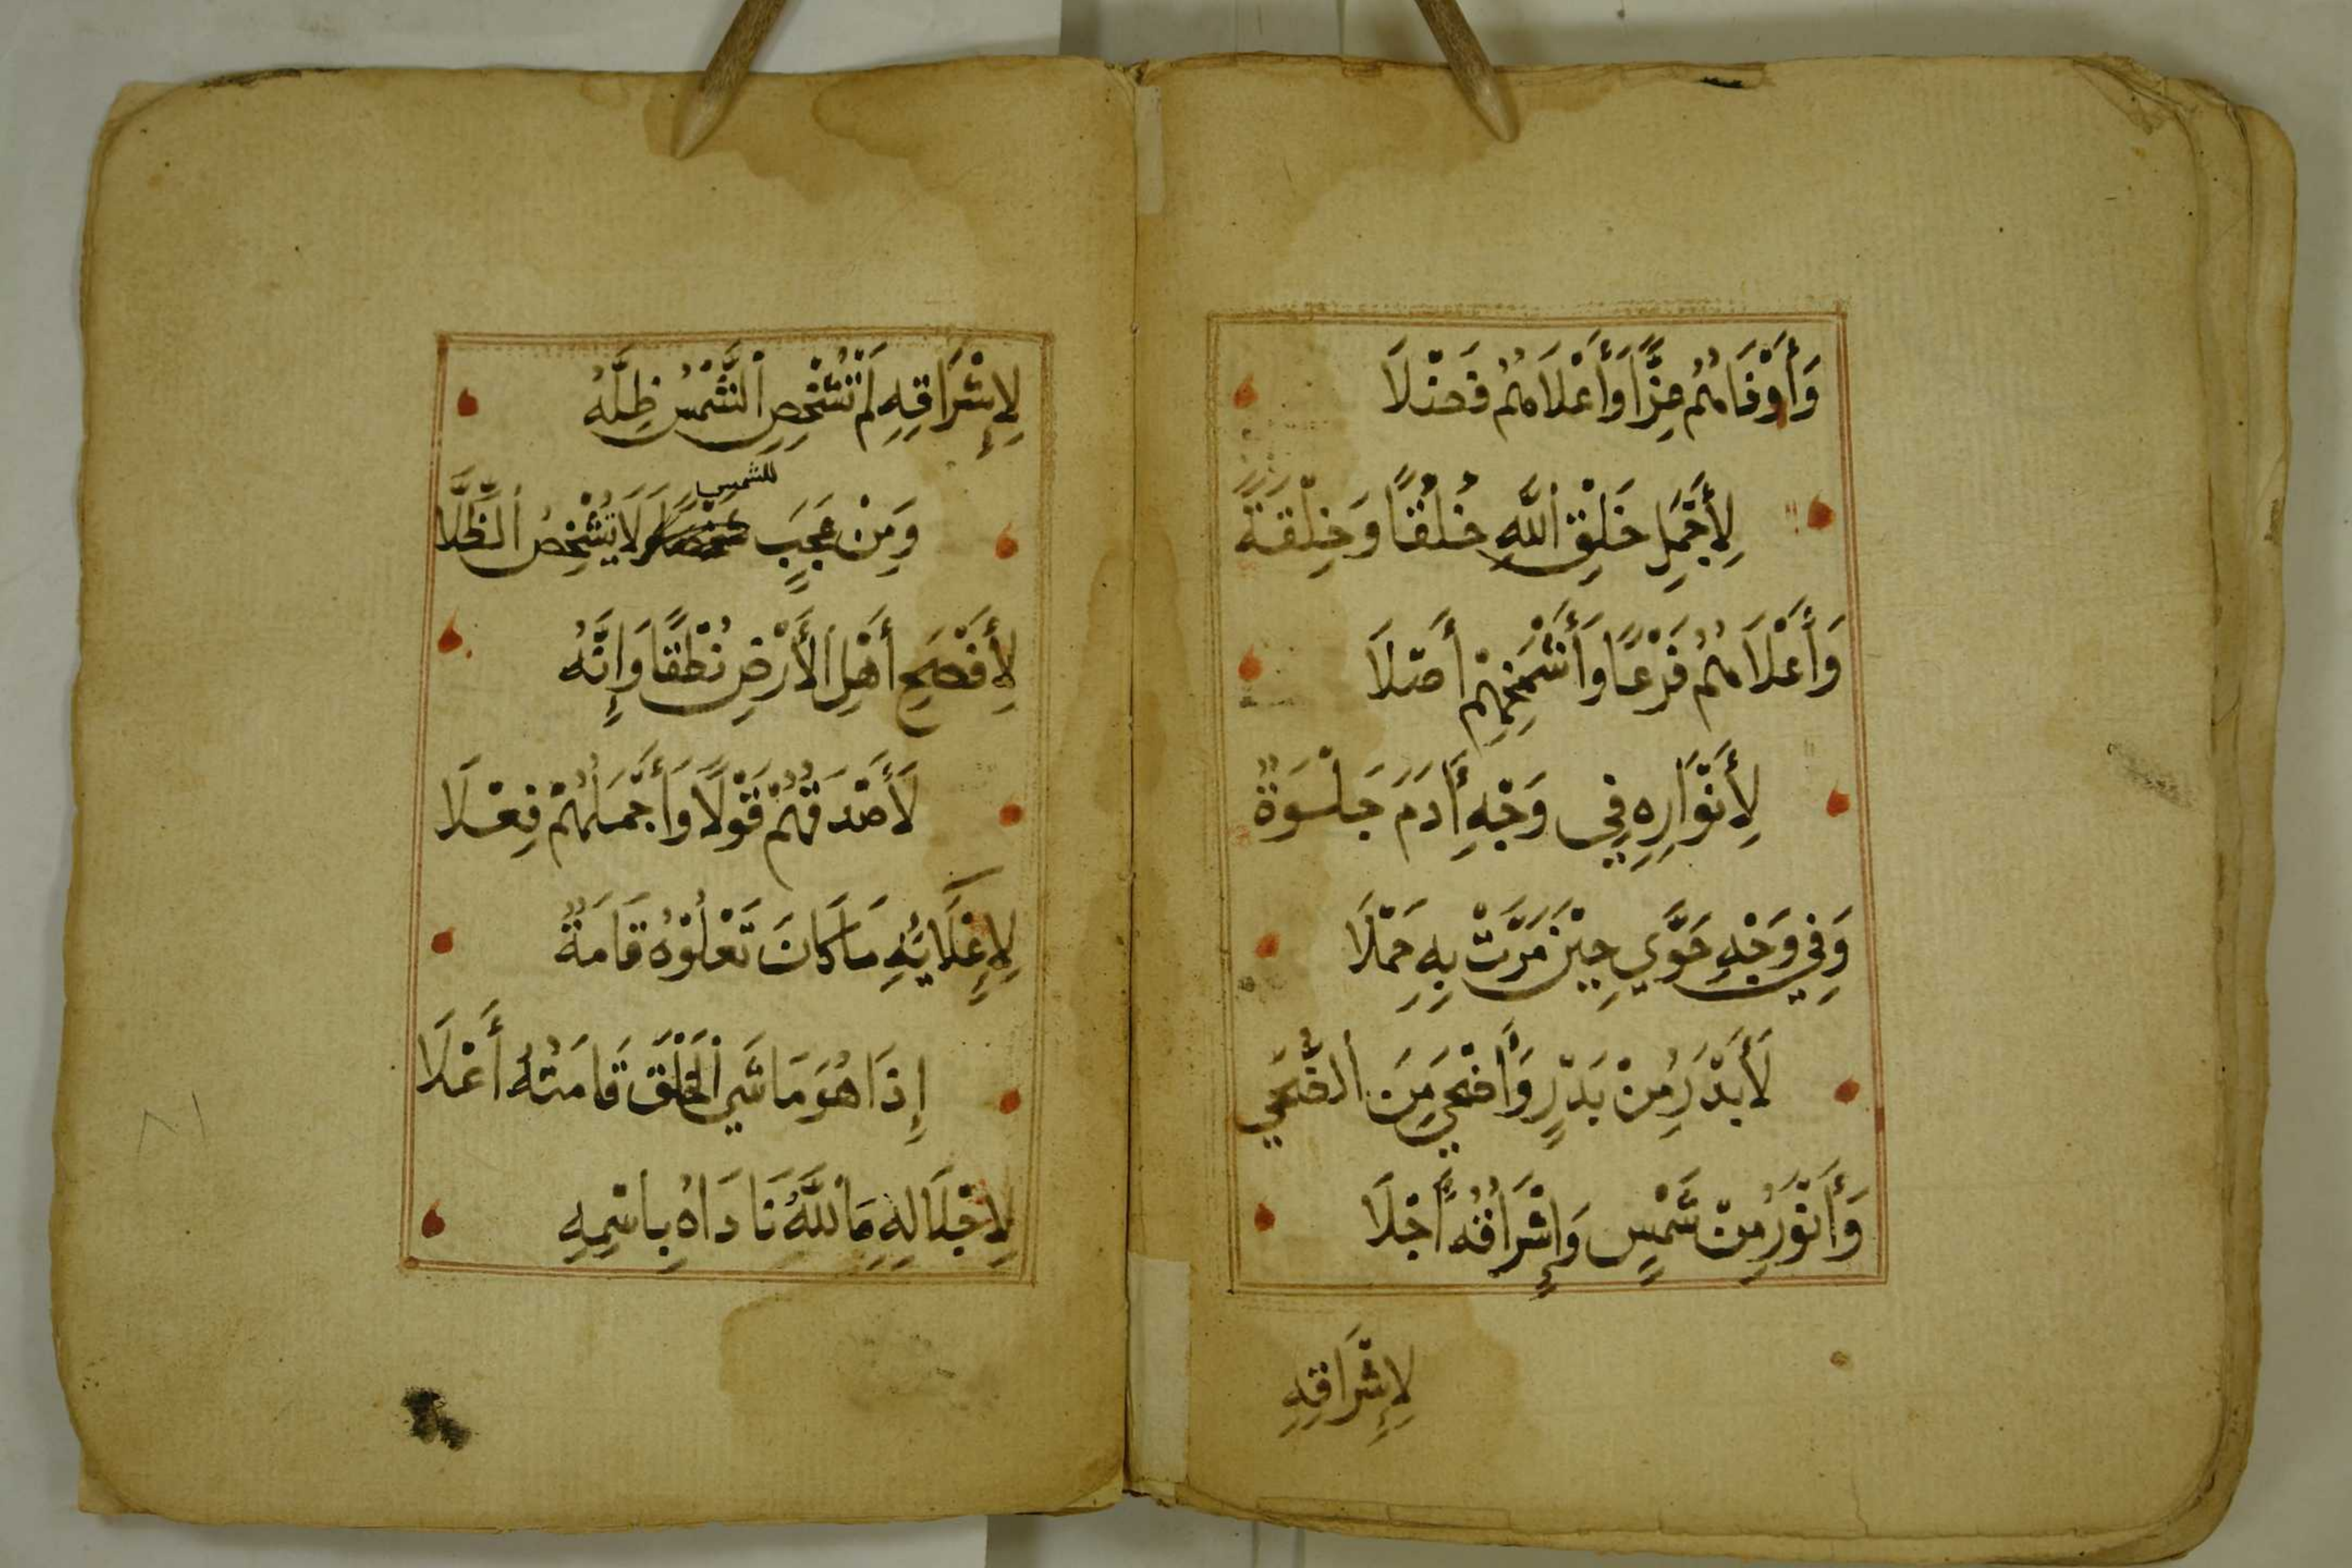 وَأَوْفَاهُمُ عِزًّا وَأَعْلَاهُمُ فَضْلَا
لِأَجْمَلِ خَلْقِ اللَّهِ خُلْقًا وَخِلْقَةً
وَأَعْلَاهُمُ فَرْعًا وَأَشْمَخِهِمْ أَصْلَا
لِأَنْوَارِهِ فِي وَجْهِ أَادَمَ جَلْوَةٌ
وَفِي وَجْهِ حَوَّي حِيْنَ مَرَّتْ بِهِ حَمْلَا
لَأَبْدَرُ مِنْ بَدْرٍ وَأَضْحَي مِنَ الضُّحَي
وَأَنْوَرُ مِنْ شَمْسٍ وَإِشْرَاقُهُ أَجْلَا
لِإِشْرَاقِهِ
لِإِشْرَاقِهِ لَمْ تُشْخِصِ الشَّمْسُ ظِلَّهُ
وَمِنْ عَجَبٍ للشمس لَا تُشْخِصُ الظِّلَّا
لِأَفْصَحِ أَهْلِ الْأَرْضِ نُطْقًا وَإِنَّهُ
لَأَصْدَقُهُمْ قَوْلًا وَأَجْمَلُهُمْ فِعْلَا
لِإِعْلَائِهِ مَا كَانَ تَعْلُوْهُ قَامَةٌ
إِذَا هُوَ مَاشَي الْخَلْقَ قَامَتُهُ أَعْلَا
لِإِجْلَالِهِ مَا اللَّهُ نَادَاهُ بِاسْمِهِ
٨١